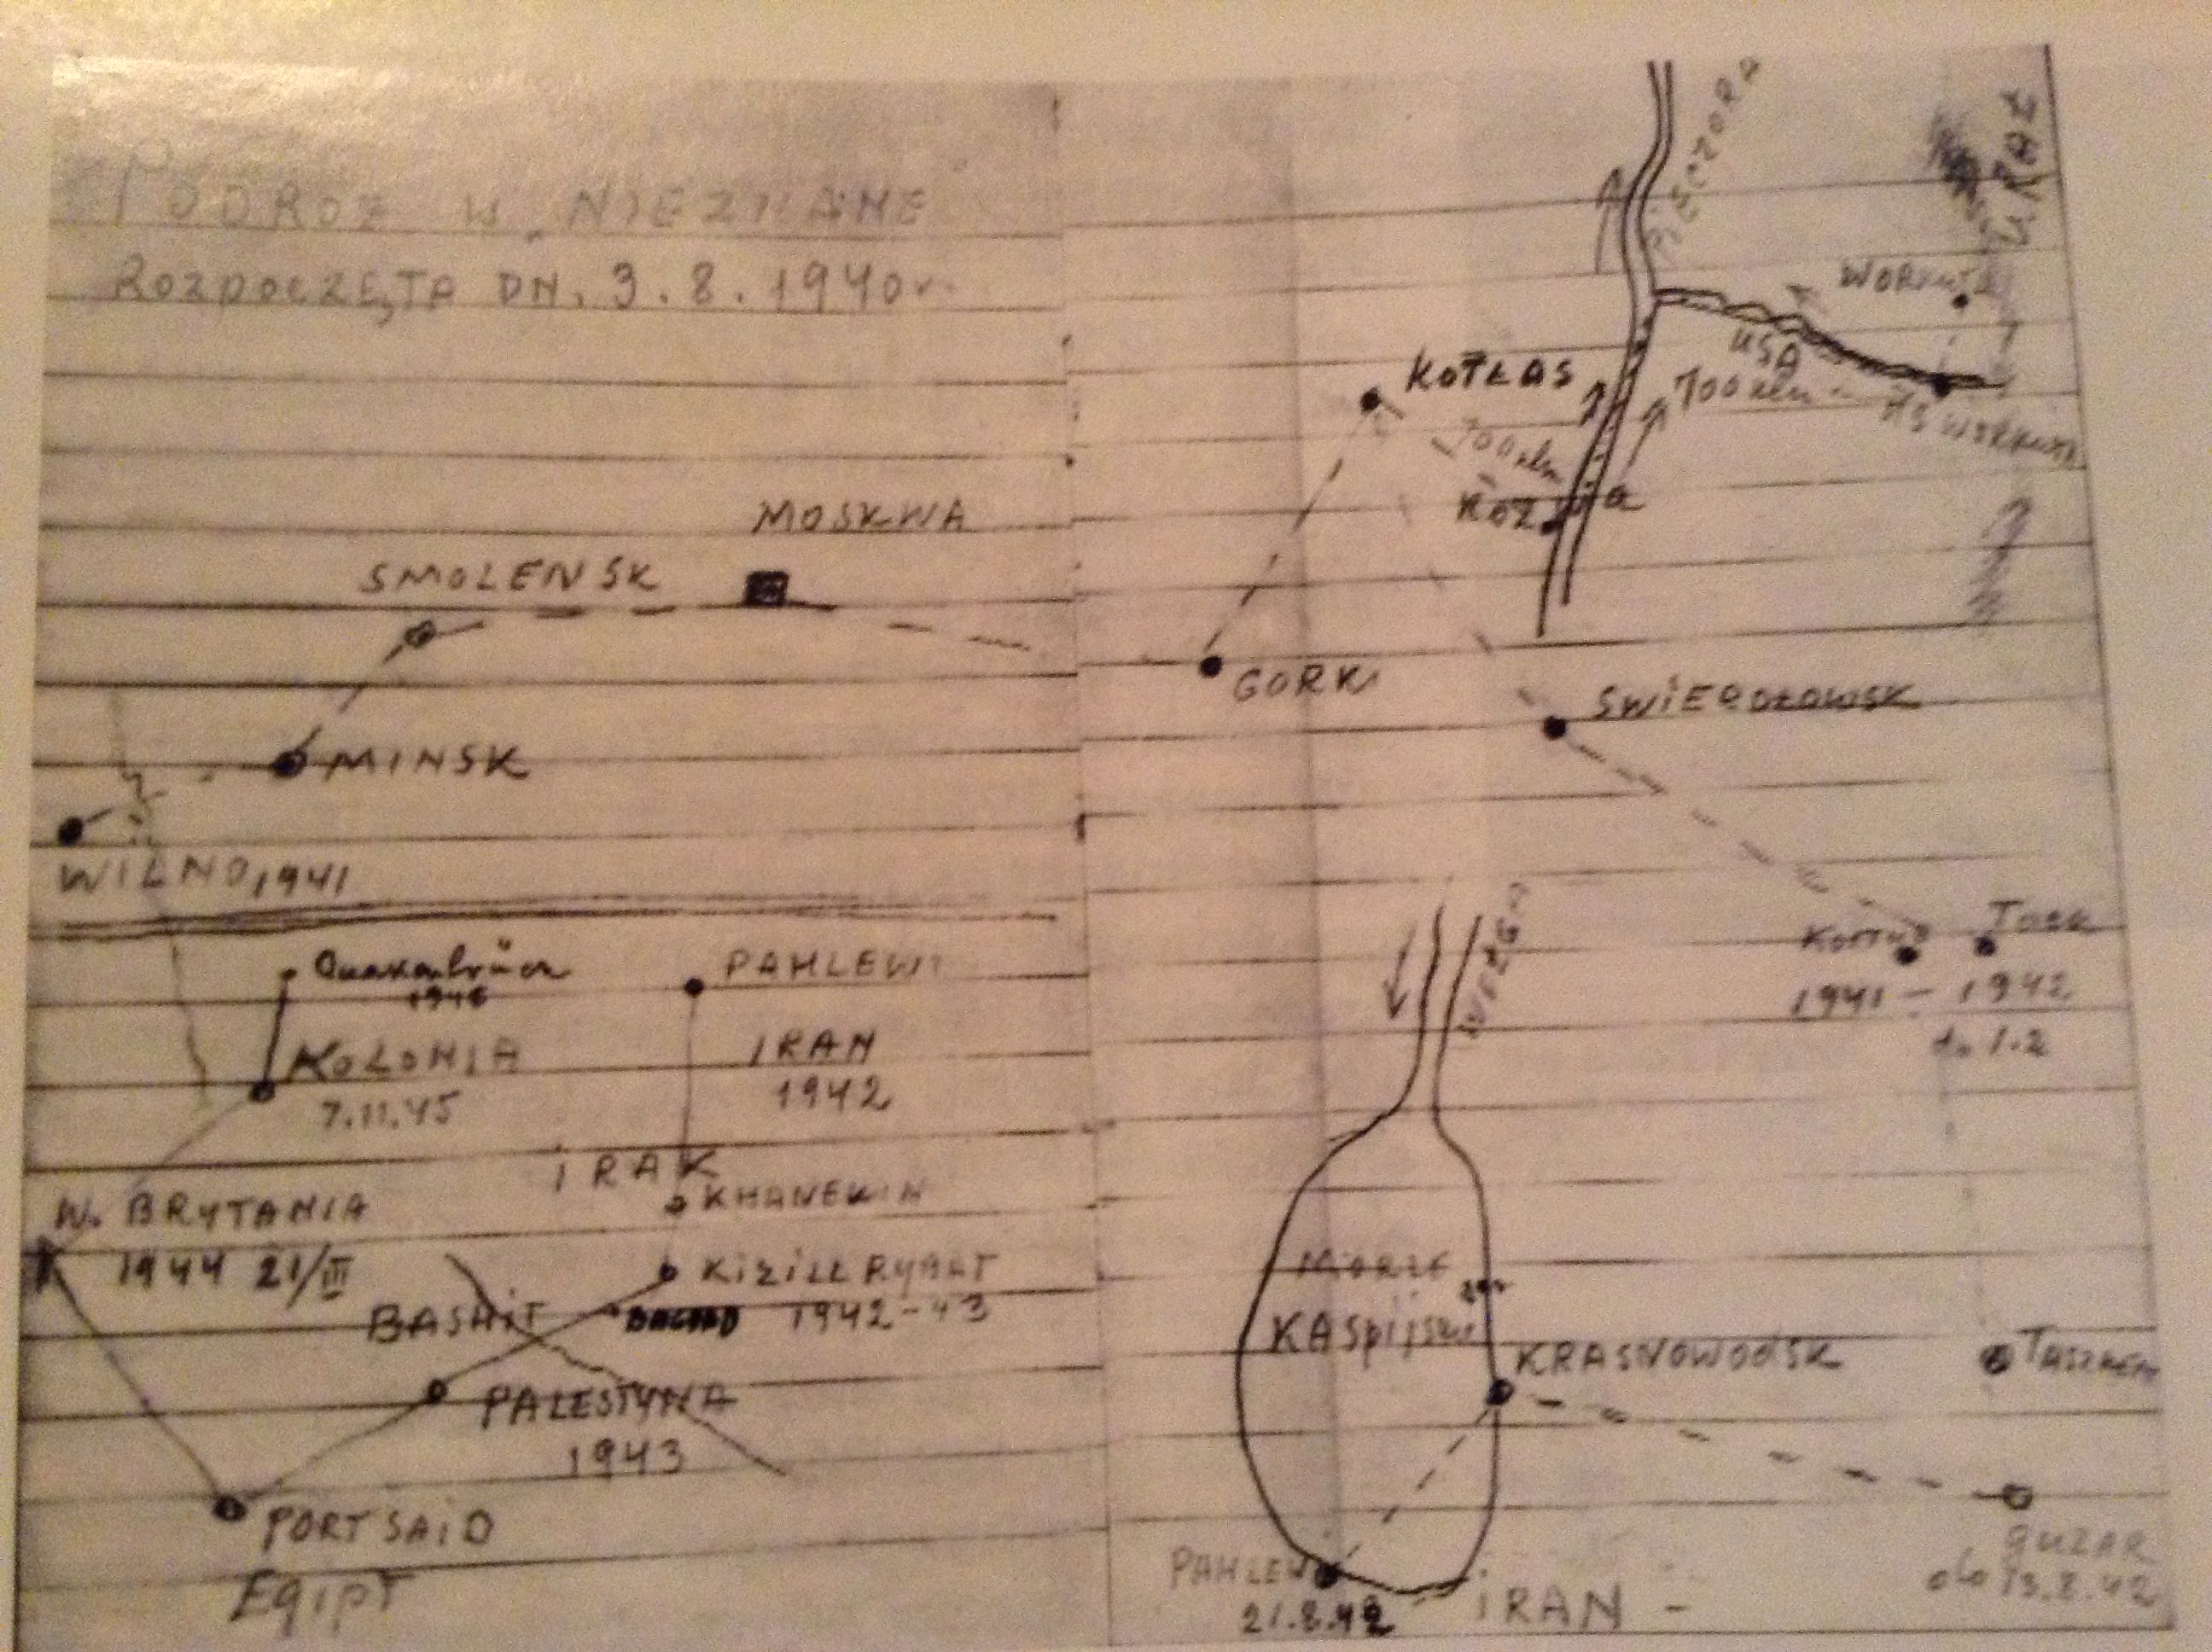 PODROŻ W NIEZNANE
ROZPOCZĘTA DN. 3.8.1940r.
MOSKWA
SMOLENSK
MINSK
WILNO, 1941
PIECZORA
URAL
WORKUTA
USA
KOTŁAS
700 klm
700 klm
KOŻWA
GORKI
SWIERDŁOWSK
1941 - 1942
do 1.2
WOŁGA
Quakenbrück
1946
PAHLEWI
KOLONIA
7.11.45
IRAN
1942
IRAK
KHANEKIN
W. BRYTANIA
1944 21/III
KIZILL RYABT
1942-43
BAGDAD
BASHIT
PALESTYNA
1943
PORT SAID
EGIPT
MORZE
KASpijskie
KRASNOWODSK
TASZKENT
GUZAR
do 13.8.42
PAHLEWI
21.8.42
IRAN -